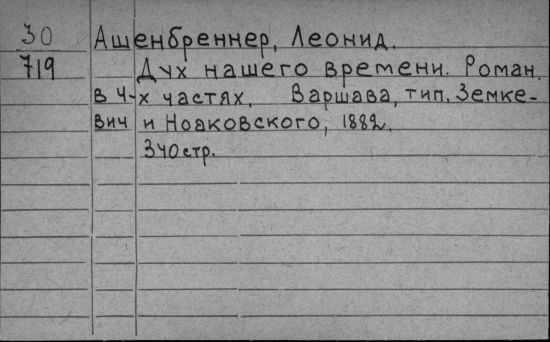 30 Ашенбреннер, Леонид.
719 Дух нашего времени. Роман.
в 4-х частях. Варшава, тип. Земке-
вич и Ноаковского, 1882.
340 стр.